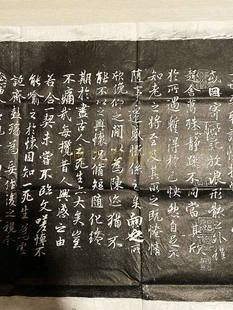 因寄所託放浪形骸之外雖
趣舍萬殊靜躁不同當其欣
於所遇暫得於己快然自足不
知老之將至及其所之既惓情
隨事遷感慨係之矣向之所
欣俛仰之閒以為陳迹猶不
能不以之興懷況脩短隨化終
期於盡古人云死生亦大矣豈
不痛哉每攬昔人興感之由
若合一契未嘗不臨文嗟悼不
能喻之於懷固知一死生為虛
誕齊彭殤為妄作後之視今